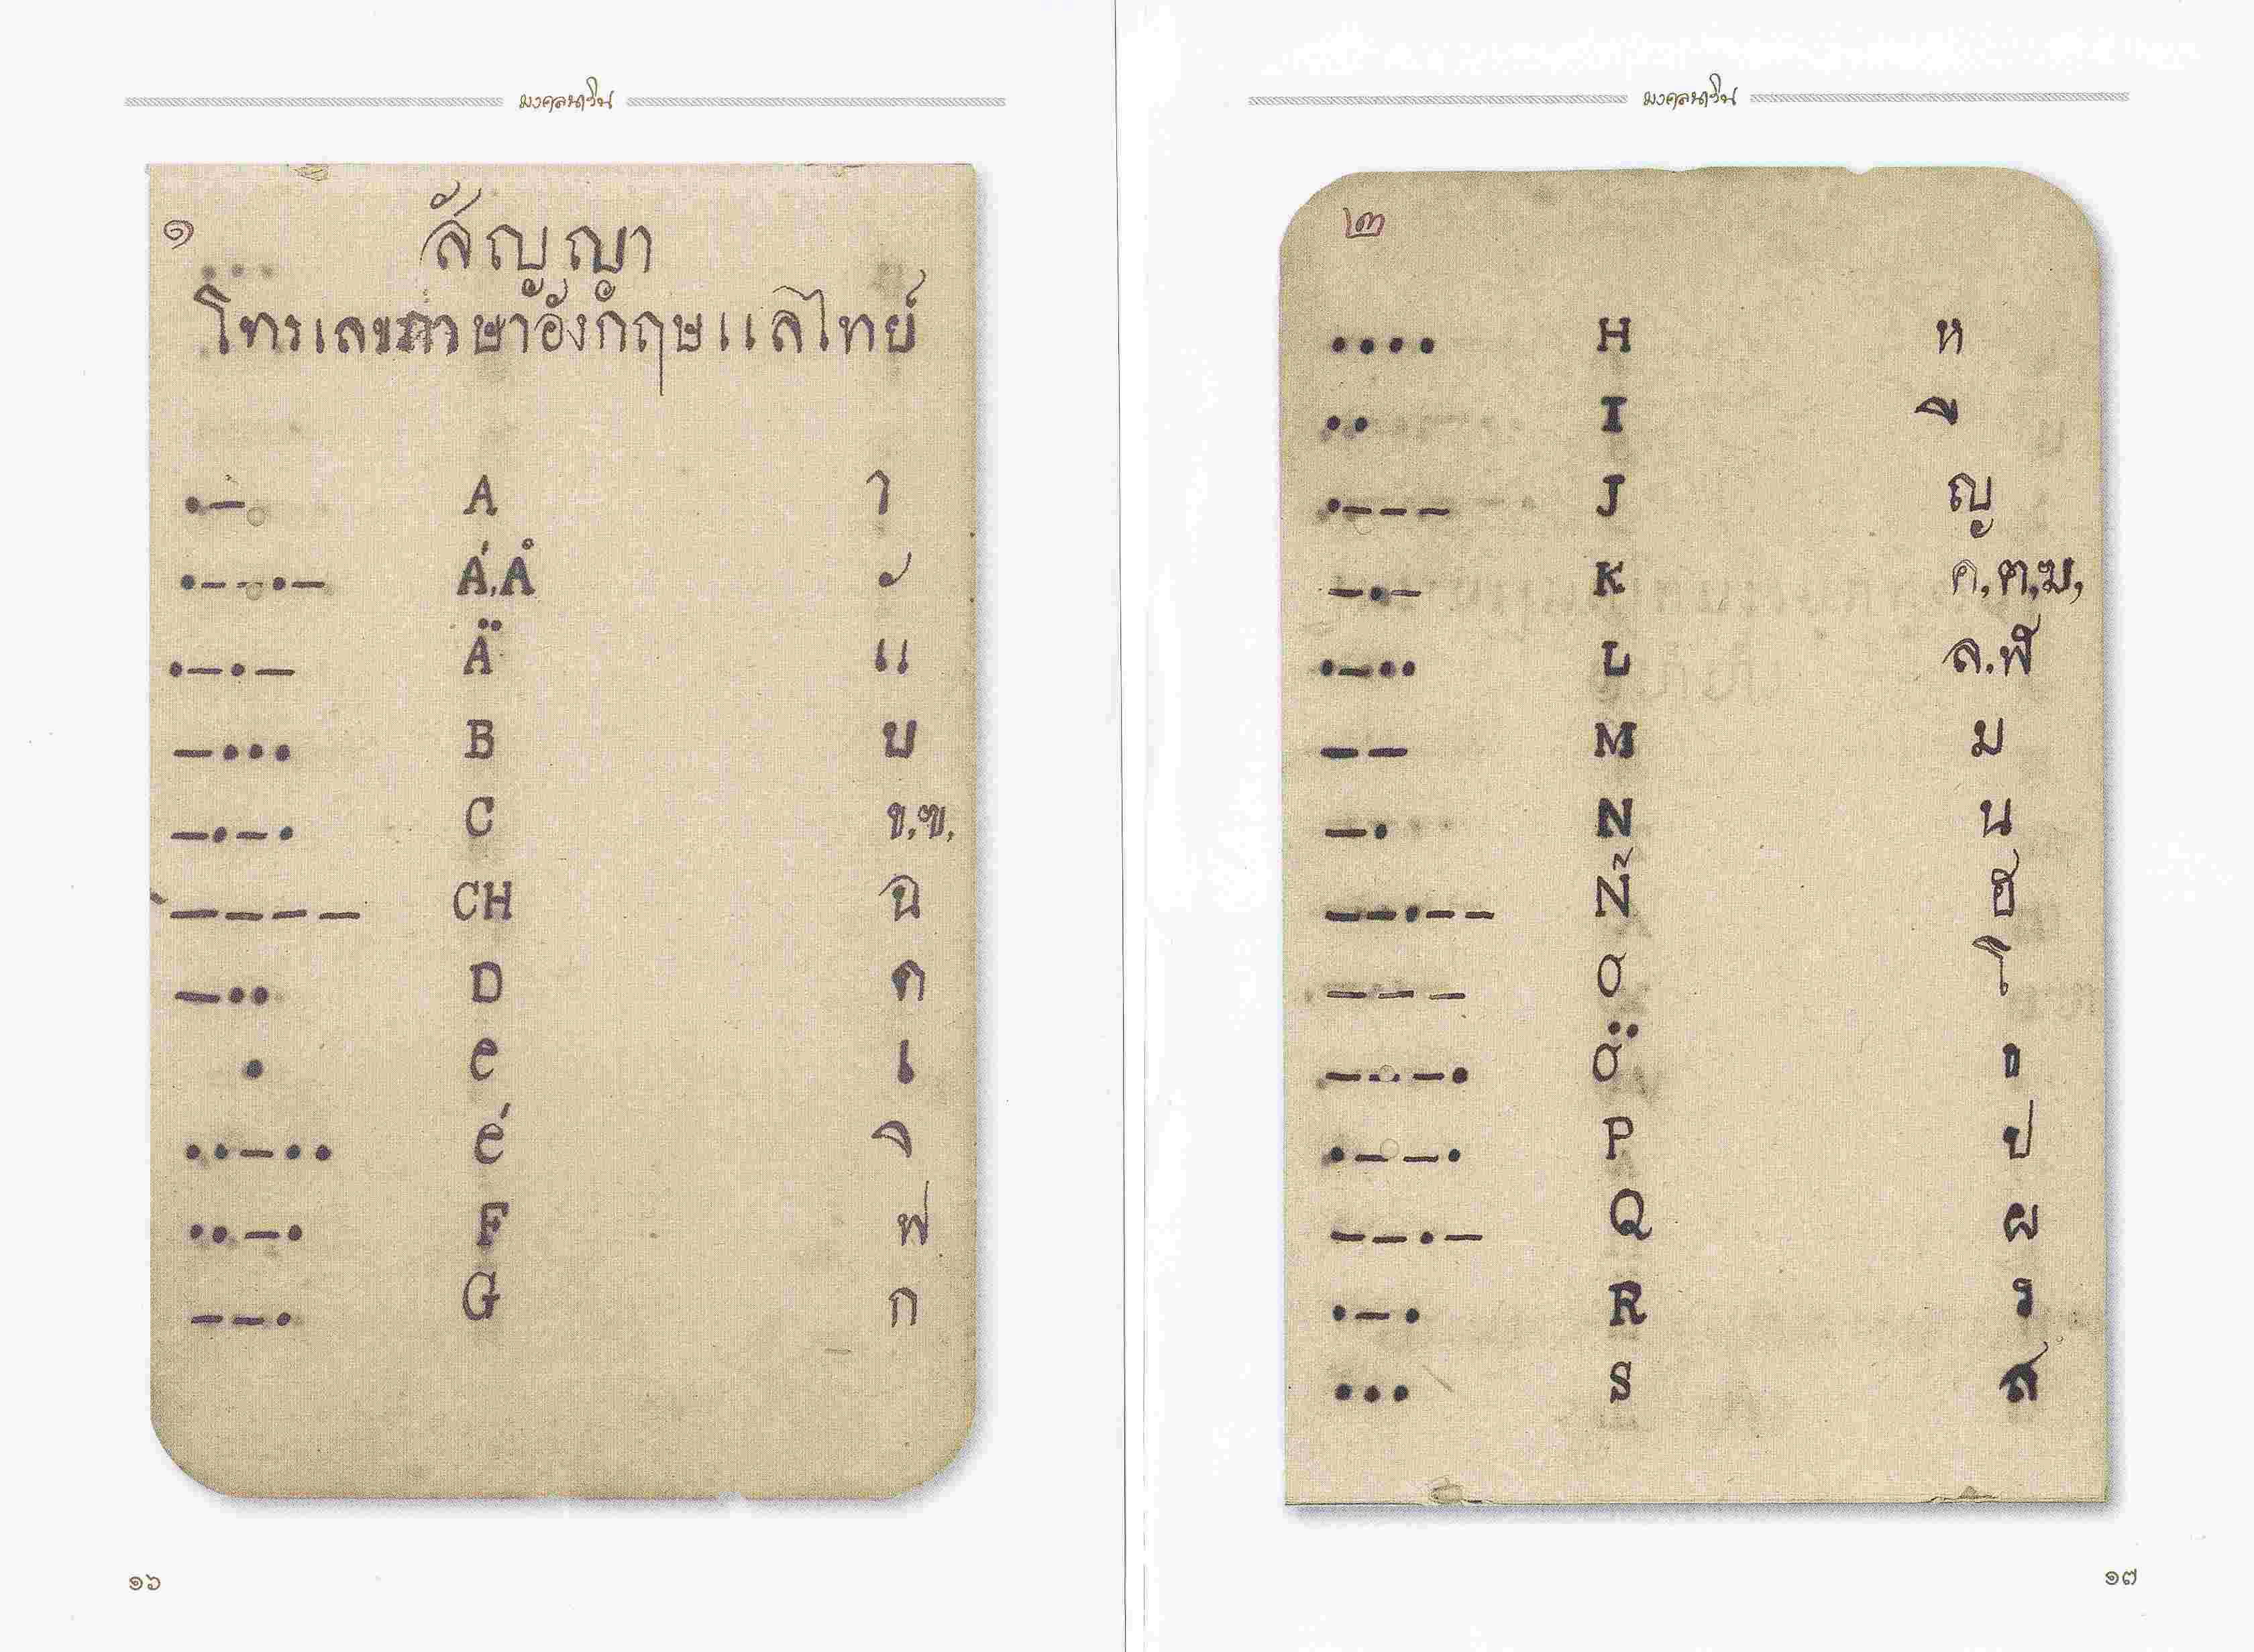 มงคลนาวิน
๑
สัญญา
โทรเลขภาษาอังกฤษแลไทย์
•— A า
•——•— Á,Å ั
•—•— Ä แ
—••• B บ
—•—• C ข,ฃ,
———— CH ฉ
—•• D ด
• e เ
••—•• é ิ
••—• F ฟ
——•  G ก
๑๖
มงคลนาวิน
๒
•••• H ห
•• I ี
•——— J ญ
—•— K ค,ฅ,ฆ,
•—•• L ล.ฬ
—— M ม
—• N น
——•—— Ñ ช
——— O โ
———• Ö า
•——• P ป
——•— Q ผ
•—• R ร
••• S ส
๑๗